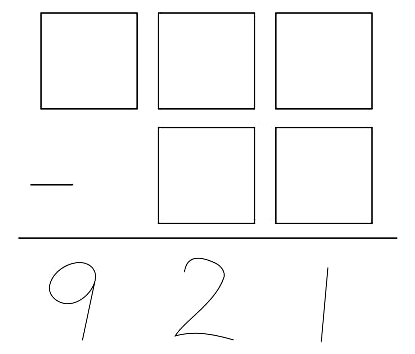 −
921